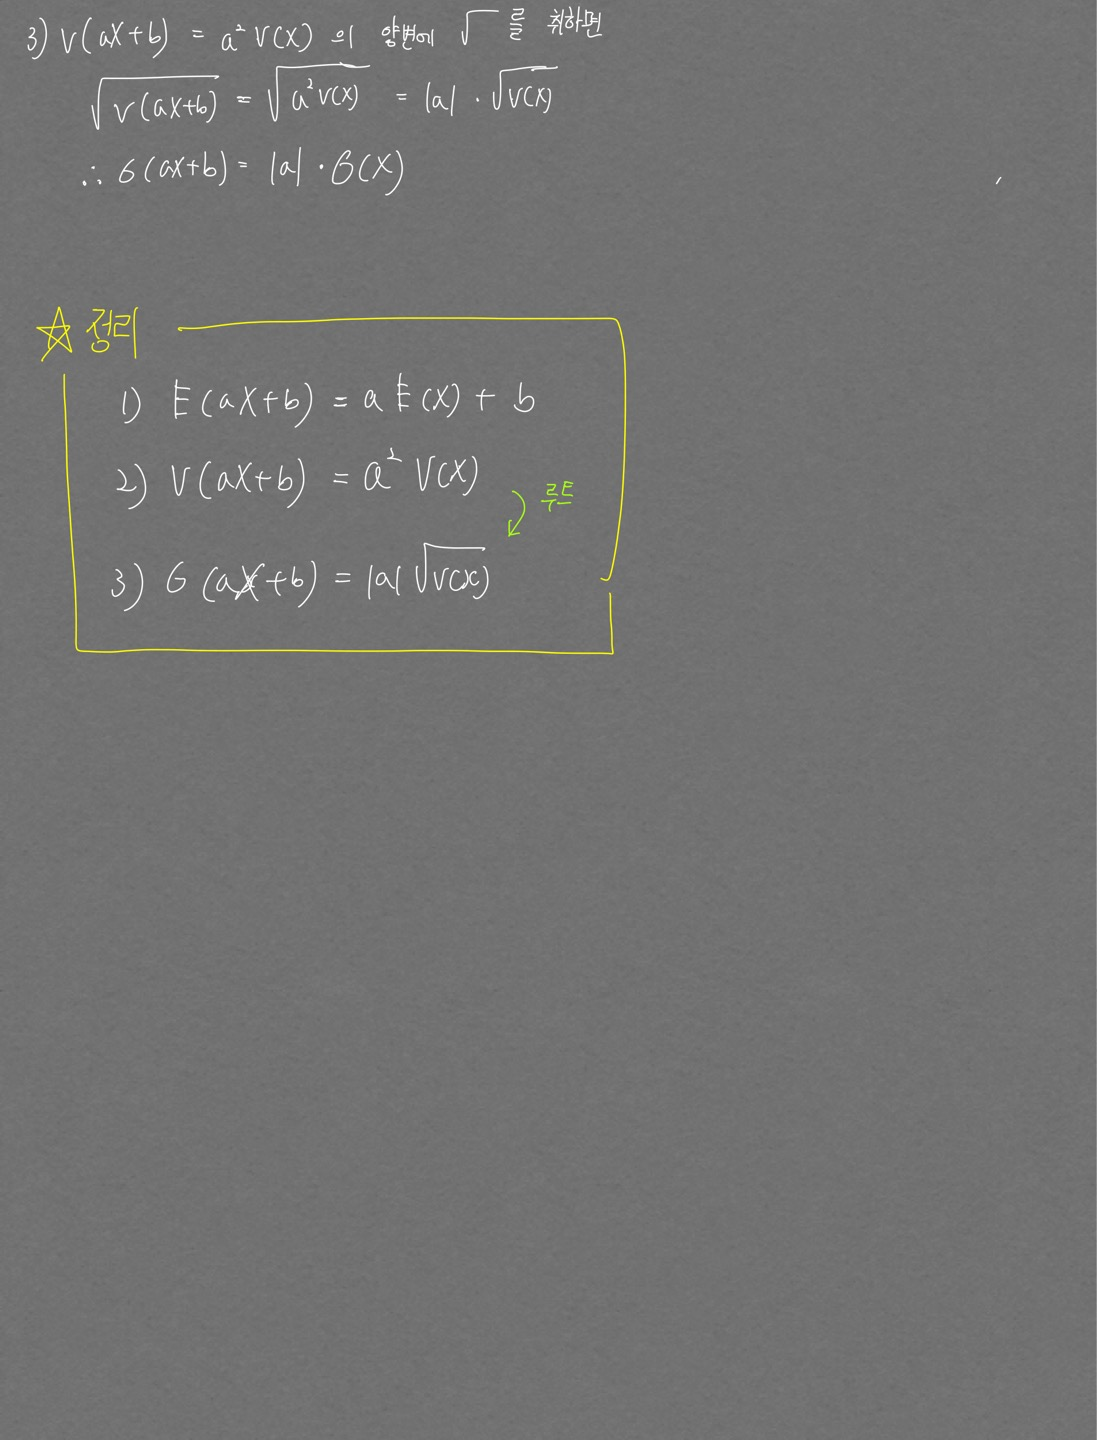 3) V(aX+b) = a² V(X) 의 양변에 √ 를 취하면
√V(aX+b) = √a²V(X) = |a| · √V(X)
∴ σ(aX+b) = |a| · σ(X)
☆ 정리
1) E(aX+b) = a E(X) + b
2) V(aX+b) = a² V(X)
루트
3) σ(aX+b) = |a| √V(X)